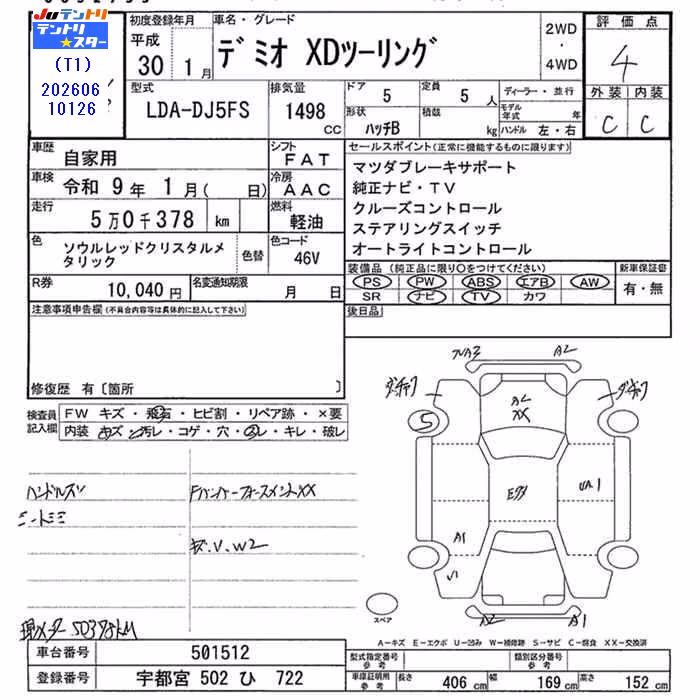 Juテントリ
テントリ
★スター
(T1)
202606
10126
初度登録年月
平成
30 1月
車名・グレード
デミオ XDツーリング
2WD
・
4WD
評価点
4
外装 内装
C C
型式
LDA-DJ5FS
排気量
1498
CC
ドア
5
定員
5 人
形状
ハッチB
積数
kg
ディーラー・並行
モデル年式 年
ハンドル 左・右
車歴
自家用
シフト
FAT
車検
令和 9年 1月( 日)
冷房
AAC
走行
5万0千378 km
燃料
軽油
色
ソウルレッドクリスタルメタリック
色替
色コード
46V
R券
10,040円
名変通知期限
月 日
セールスポイント(正常に機能するものに限ります)
マツダブレーキサポート
純正ナビ・TV
クルーズコントロール
ステアリングスイッチ
オートライトコントロール
装備品(純正品に限り○をつけてください)
PS PW ABS エアB AW
SR ナビ TV カワ
新車保証書
有・無
後日品
注意事項申告欄(不具合内容等は具体的に記入して下さい)
修復歴 有〔箇所 〕
検査員記入欄
FW キズ・飛石・ヒビ割・リペア跡・×要
内装 キズ・汚レ・コゲ・穴・スレ・キレ・破レ
ハンドルスレ
シートシミ
FバンパーフォースメントXX
キズ.V.W2
現メーター50378KM
A2
ダンチック
S
A2
XX
EXX
UA1
A1
A2
A1
スペア
A-キズ E-エクボ U-凹み W-補修跡 S-サビ C-腐食 XX-交換済
車台番号
501512
登録番号
宇都宮 502 ひ 722
型式指定番号
参考
類別区分番号
参考
車庫証明用
参考
長さ 406 cm
幅 169 cm
高さ 152 cm